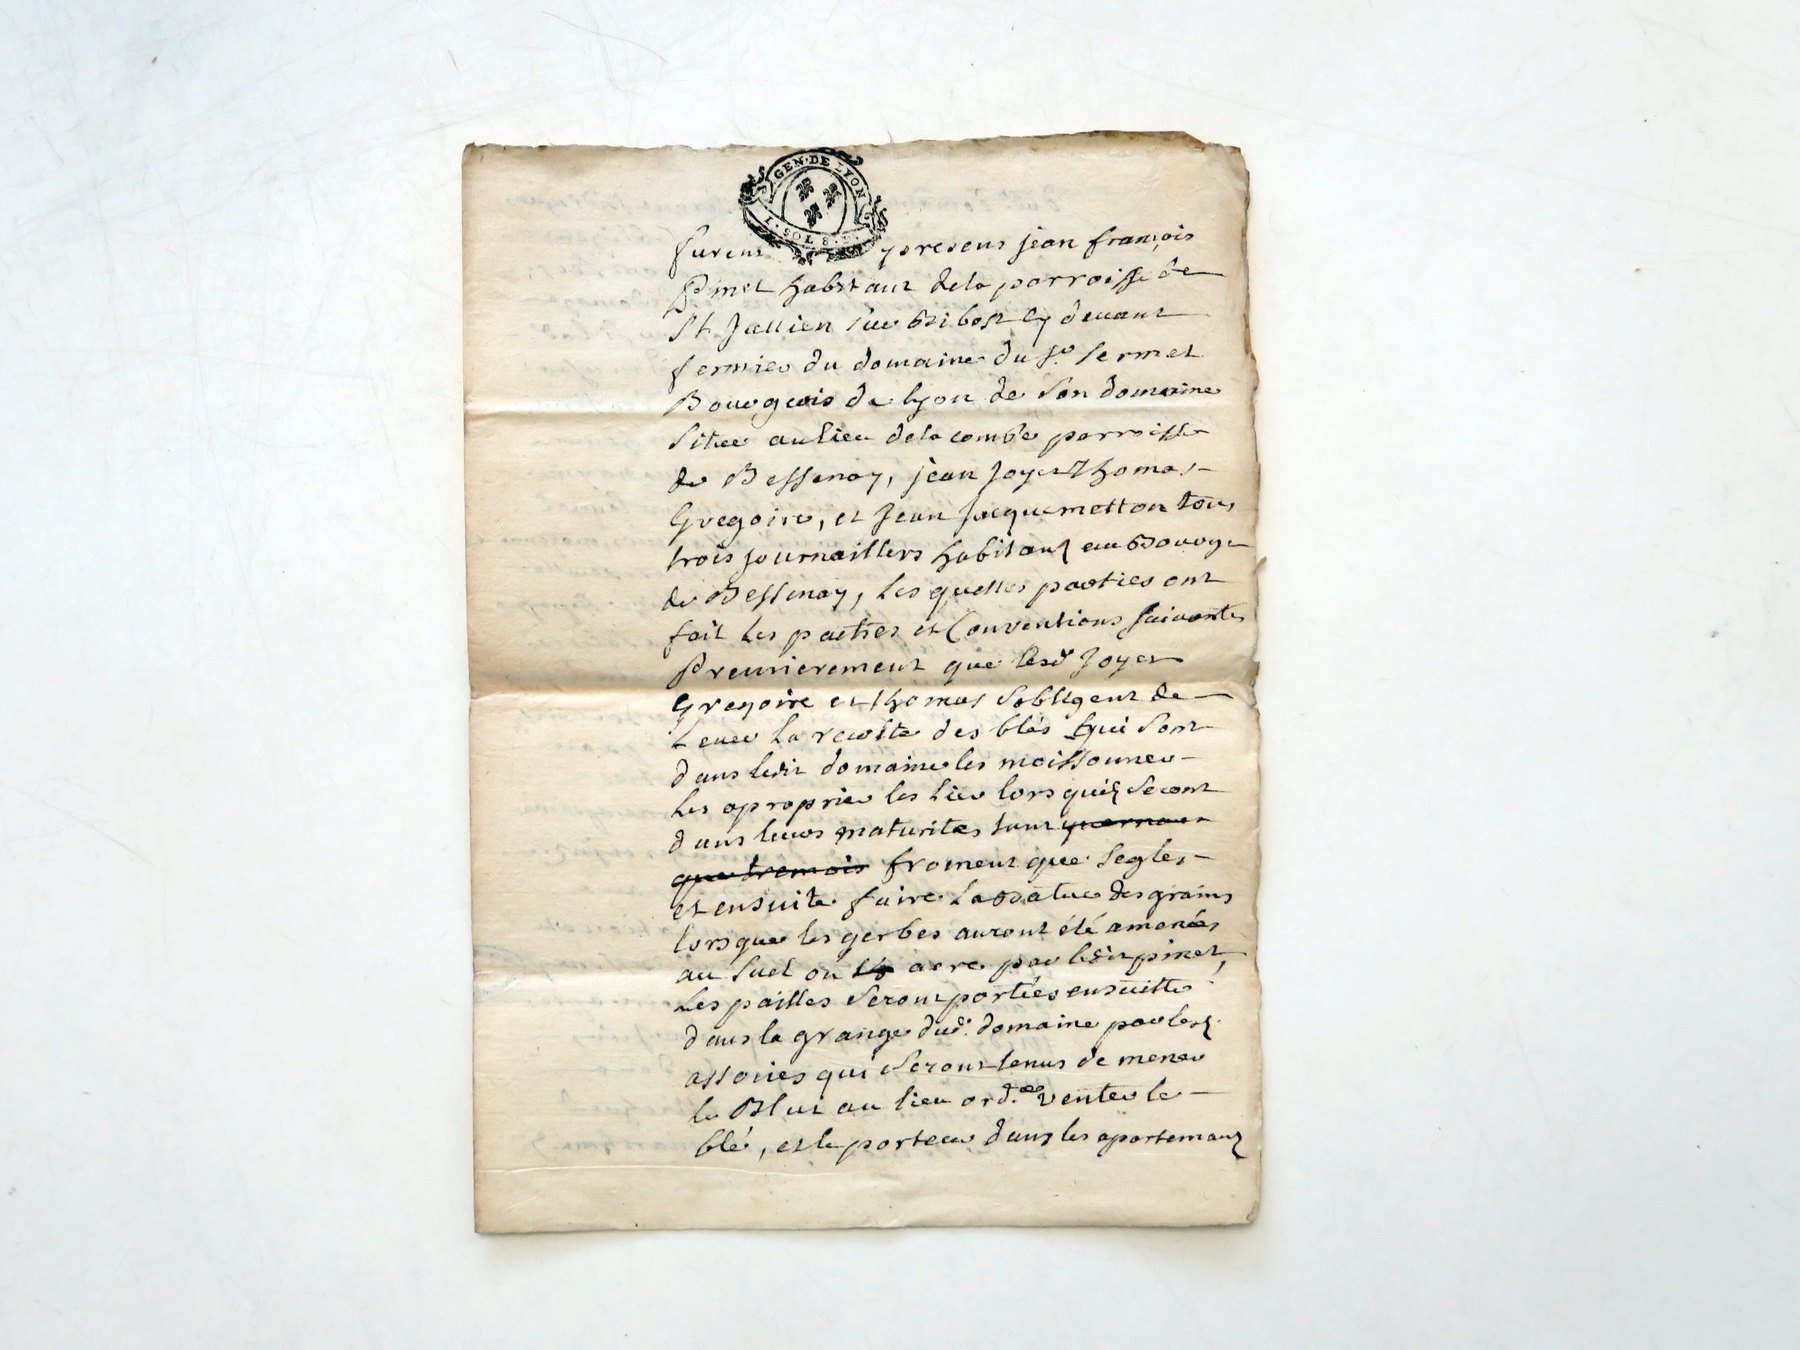 GEN · DE LYON
1 · SOL 8 · D
furent presens jean françois
Pinet habitant dela parroisse de
St Jullien sur Bibost cy devant
fermier du domaine du Sr. Sermet
Bourgeois de lyon de Son domaine
Situé au lieu dela combe parroisse
de Bessenay, jean Joyet Thomas
Gregoire, et Jean Jacquemetton tous
trois journaillers habitans au Bourg
de Bessenay, Les quelles parties ont
fait Les pactes et Conventions Suivantes
Premierement que lesd Joyet
Gregoire et thomas Sobligent de
Lever La recolte des blés qui Sont
dans ledit domaine les moissonner
Les aproprier les Lier lors quils Seront
dans leurs maturités tant
que tremois froment que Segles
et ensuite faire La Batue des grains
lorsque les gerbes auront été amenées
au Suel ou aere par ledit pinet,
Les pailles Seront portées ensuitte
dans la grange dud. domaine par lesd.
associes qui Seront tenus de mener
le Blut au lieu ord.re venter le
blé, et le porter dans les apartemans